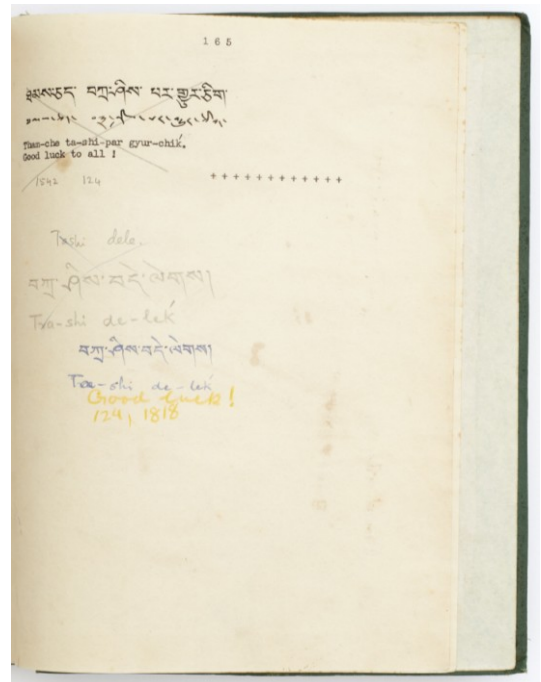 1 6 5
ཐམས་ཅད་ བཀྲ་ཤིས་ པར་ གྱུར་ཅིག
Than-che ta-shi-par gyur-chik.
Good luck to all !
1542 124
+ + + + + + + + + + + +
Tashi dele.
བཀྲ་ཤིས་བདེ་ལེགས།
Tra-shi de-lek
བཀྲ་ཤིས་བདེ་ལེགས།
Tra-shi de-lek
Good luck!
124, 1818